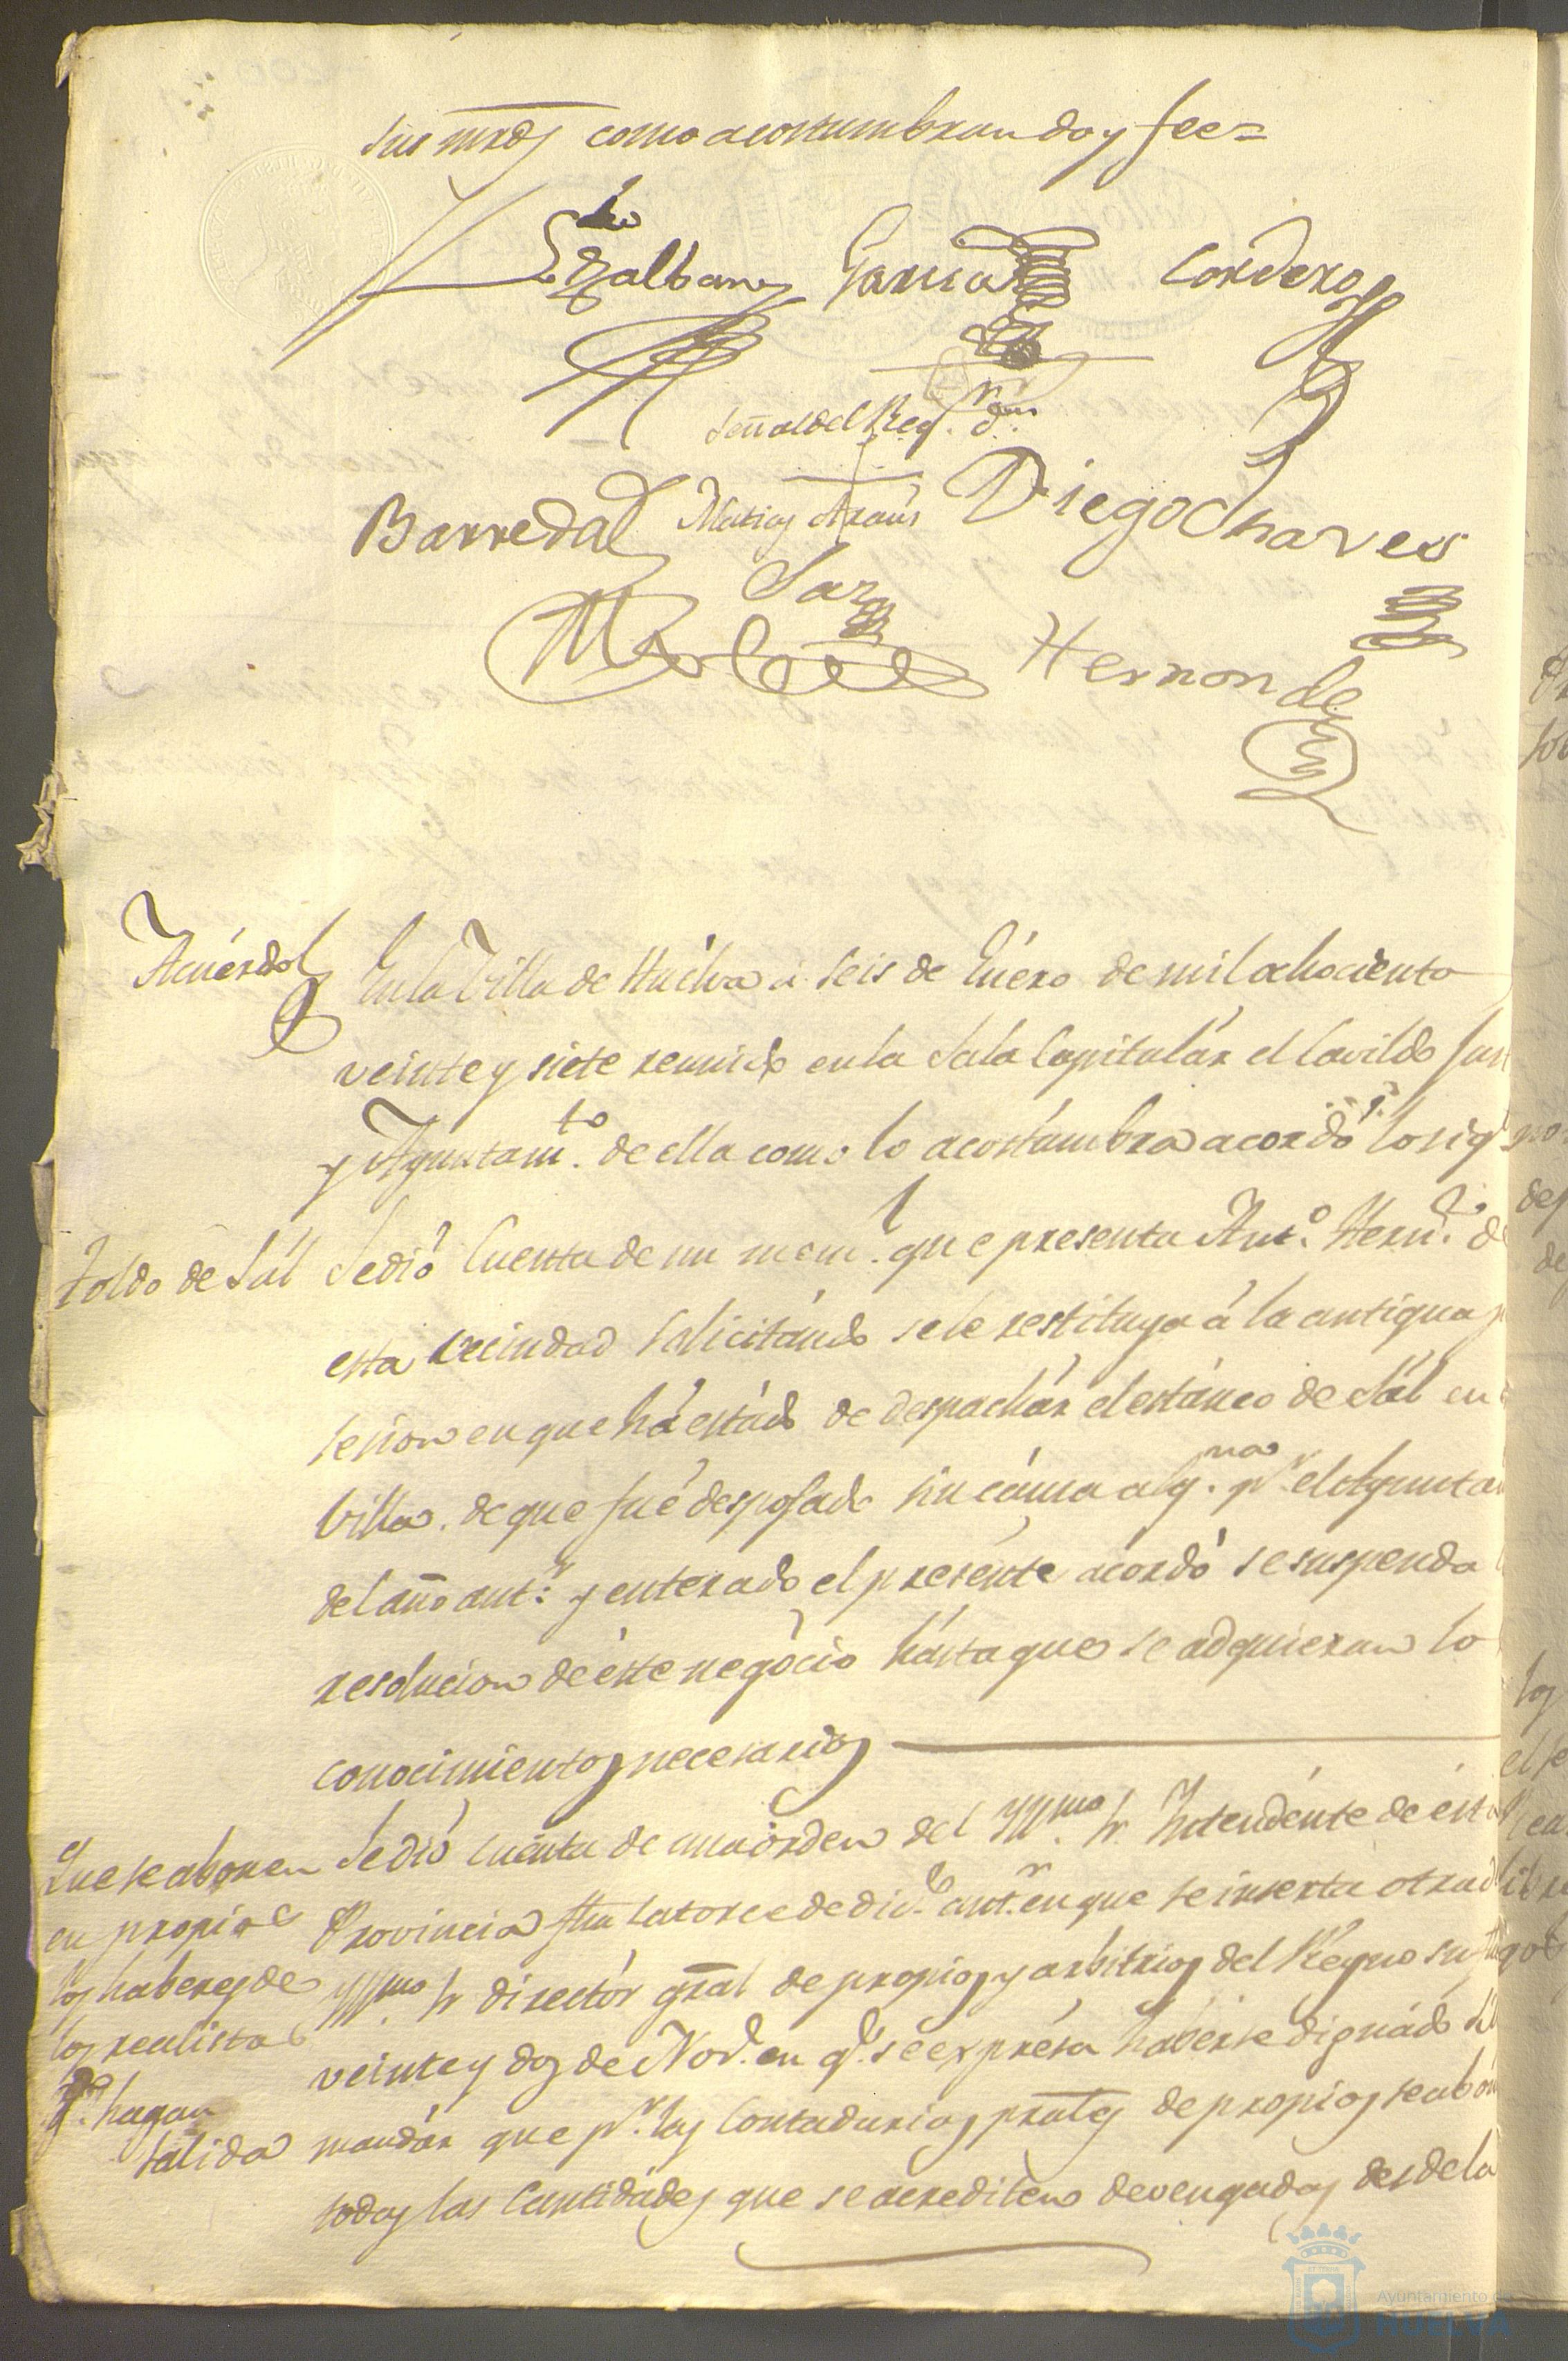 sus mrds como acostumbran doy fee=
Lizdo
Garcia
Cordero
Señal del Reg.r d.n
Barreda
Matias Araus
Diego Chaves
Saez
Hernandez
Acuérdo
En la Villa de Huélva á seis de Enéro de mil ochociento
veinte y siete reunido en la Sala Capitulár el Cavildo Jus
y Ayuntam.to de ella como lo acostúmbra acordó lo sig.
Toldo de Sál
Se dió Cuenta de un mem.l que presenta Ant.o Hern.z de
esta vecindad Solicitándo se le restituya á la antigua p
sesion en que há estádo de despachár el estánco de Sál en
Villa, de que fué despojado sin cáusa alg.na p.r el Ayunta
del año ant.r y enterado el presénte acordó se suspenda
resolucion de éste negócio hásta que se adquieran lo
conocimientos necesarios
Que se abonen
en propios
los haberes de
los realistas
q.e hagan
salida
Se dió cuénta de una órden del Yll.mo Sr. Intendénte de ésta
Provincia fha catorce de Dic.e ant.r en que se inserta otra d
Yll.mo Sr diréctor gral de propios y arbitrios del Reyno su f
veinte y dos de Nov.e en q.e se exprésa haberse dignádo S.
mandár que p.r las Contadurias prales de propios se abón
todas las Cantidádes que se acrediten devengadas desde la
Ayuntamiento de
HUELVA